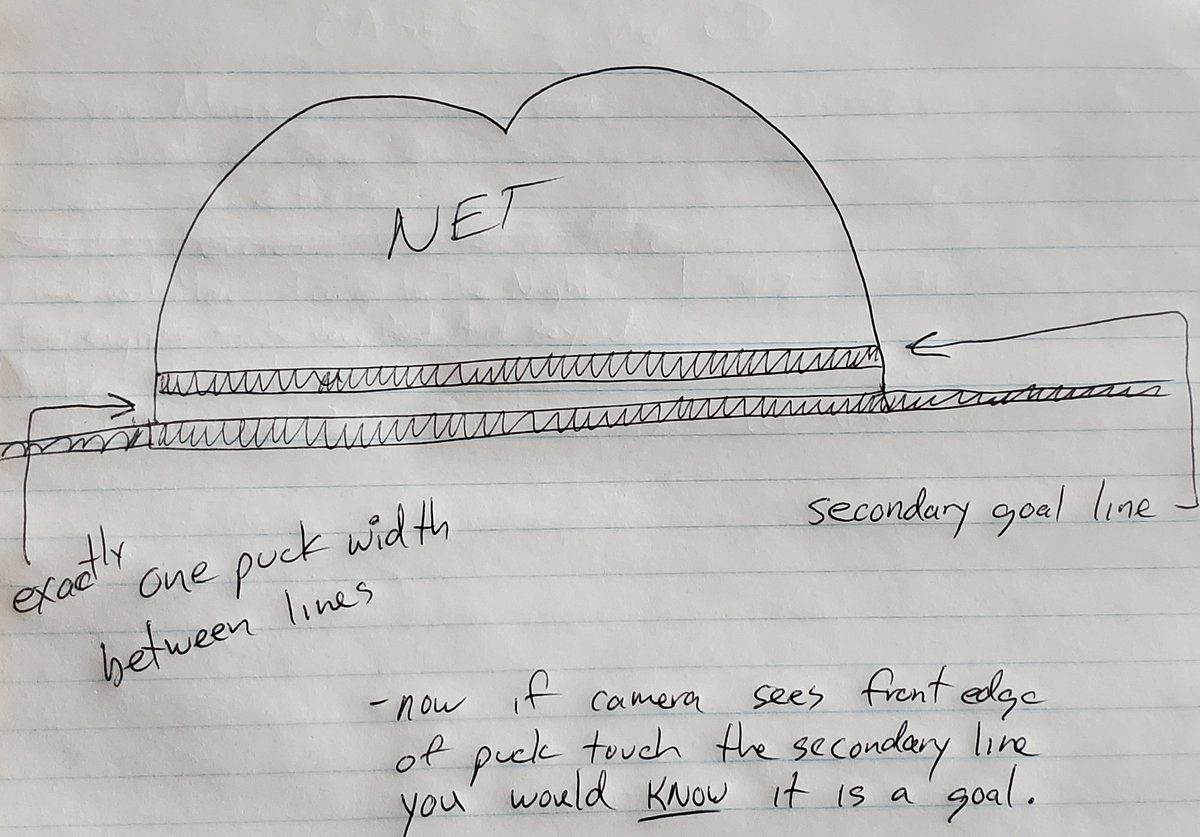 NET
secondary goal line
exactly one puck width
between lines
- now if camera sees front edge
of puck touch the secondary line
you would KNOW it is a goal.